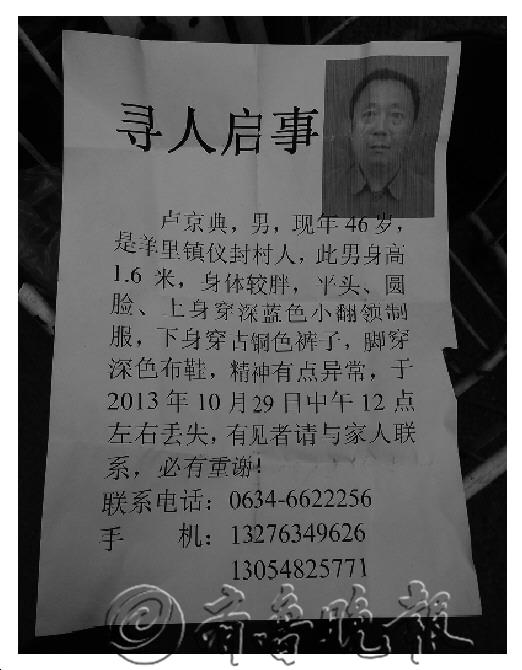 寻人启事
卢京典，男，现年46岁，
是羊里镇仪封村人，此男身高
1.6 米，身体较胖，平头、圆
脸、上身穿深蓝色小翻领制
服，下身穿古铜色裤子，脚穿
深色布鞋，精神有点异常，于
2013年10月29日中午12点
左右丢失，有见者请与家人联
系，必有重谢!
联系电话：0634-6622256
手 机：13276349626
13054825771
齐鲁晚报